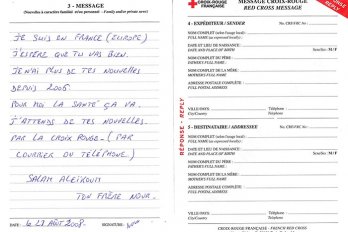 3 - MESSAGE
(Nouvelles à caractère familial et/ou personnel - Family and/or private news)
JE SUIS EN FRANCE (EUROPE)
J'ESPÈRE QUE TU VAS BIEN.
JE N'AI PLUS DE TES NOUVELLES
DEPUIS 2006
POUR MOI LA SANTÉ ÇA VA.
J'ATTENDS DE TES NOUVELLES.
PAR LA CROIX ROUGE. (PAR
COURRIER OU TÉLÉPHONE)
SALAM ALEIKOUM
TON FRÈRE NOUR.
DATE: le 27 AOÛT 2008. SIGNATURE:
CROIX-ROUGE
FRANÇAISE
MESSAGE CROIX-ROUGE
RED CROSS MESSAGE
RÉPONSE
REPLY
4 - EXPÉDITEUR / SENDER
No CRI/FRC No:
NOM COMPLET (selon l'usage local) :
FULL NAME (as expressed locally) :
DATE ET LIEU DE NAISSANCE :
DATE AND PLACE OF BIRTH
Sexe/Sex : M / F
NOM COMPLET DU PÈRE :
FATHER'S FULL NAME
NOM COMPLET DE LA MÈRE :
MOTHER'S FULL NAME
ADRESSE POSTALE COMPLÈTE
FULL POSTAL ADDRESS
VILLE/PAYS
CITY/COUNTRY
Téléphone
Telephone
RÉPONSE - REPLY
5 - DESTINATAIRE / ADDRESSEE
No CRI/FRC No:
NOM COMPLET (selon l'usage local) :
FULL NAME (as expressed locally) :
DATE ET LIEU DE NAISSANCE :
DATE AND PLACE OF BIRTH
Sexe/Sex : M / F
NOM COMPLET DU PÈRE :
FATHER'S FULL NAME
NOM COMPLET DE LA MÈRE :
MOTHER'S FULL NAME
ADRESSE POSTALE COMPLÈTE
FULL POSTAL ADDRESS
VILLE/PAYS
CITY/COUNTRY
Téléphone
Telephone
CROIX-ROUGE FRANÇAISE - FRENCH RED CROSS